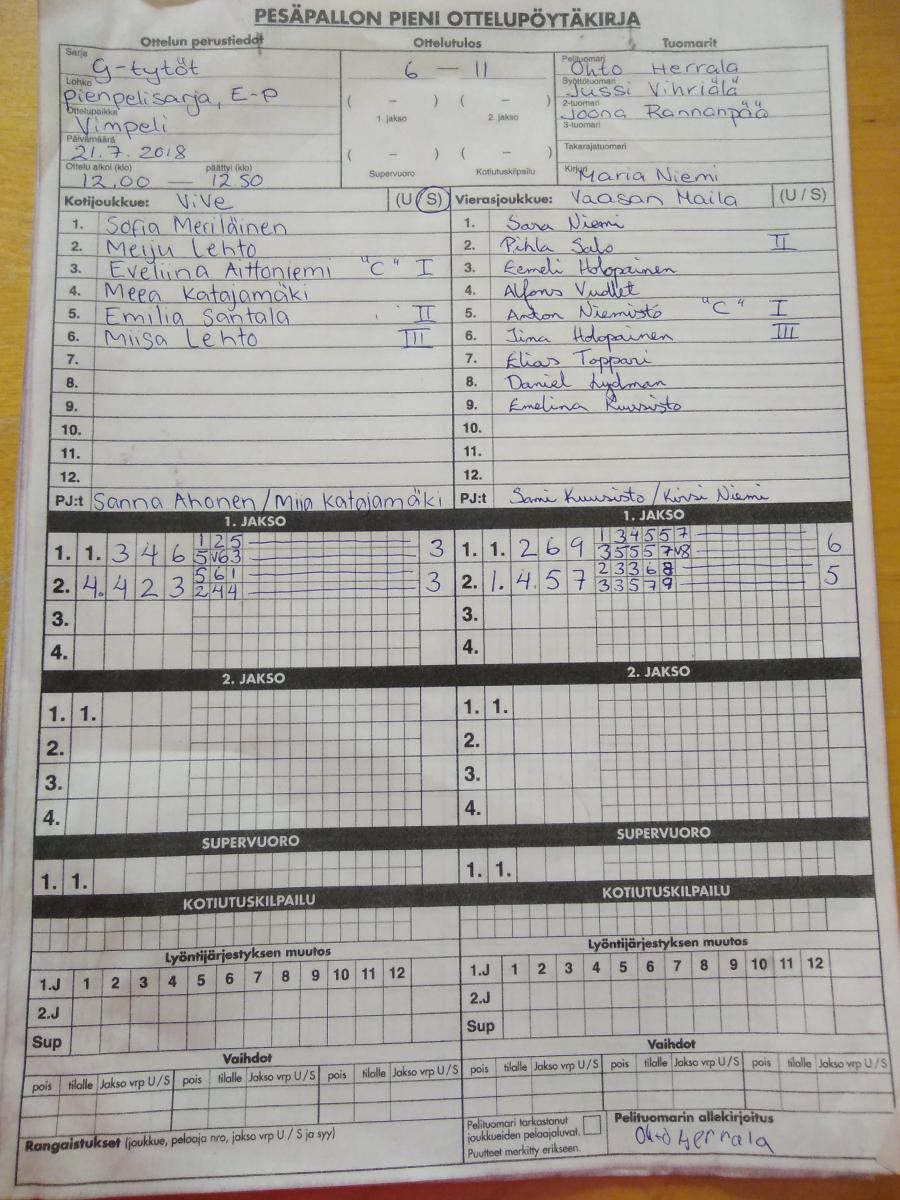 PESÄPALLON PIENI OTTELUPÖYTÄKIRJA
Ottelun perustiedot
Ottelutulos
Tuomarit
Sarja
G-tytöt
Lohko
pienpelisarja, E-P
Ottelupaikka
Vimpeli
Päivämäärä
21.7.2018
Ottelu alkoi (klo) päättyi (klo)
12.00 — 12.50
6 — 11
( – ) ( – )
1. jakso 2. jakso
( – ) ( – )
Supervuoro Kotiutuskilpailu
Pelituomari
Ohto Herrala
Syöttötuomari
Jussi Vihriälä
2-tuomari
Joona Rannanpää
3-tuomari
Takarajatuomari
Kirjuri
Maria Niemi
Kotijoukkue: ViVe (U / S)
1. Sofia Meriläinen
2. Meiju Lehto
3. Eveliina Aittoniemi "C" I
4. Meea Katajamäki
5. Emilia Santala II
6. Miisa Lehto III
7.
8.
9.
10.
11.
12.
PJ:t Sanna Ahonen / Miia Katajamäki
Vierasjoukkue: Vaasan Maila (U / S)
1. Sara Niemi
2. Pihla Salo II
3. Eemeli Holopainen
4. Alfons Vudllet
5. Anton Niemistö "C" I
6. Iina Holopainen III
7. Elias Toppari
8. Daniel Lydman
9. Emelina Kuusisto
10.
11.
12.
PJ:t Sami Kuusisto / Kirsi Niemi
1. JAKSO
1. 1. 3 4 6 1 2 5 3
5 v6 3
2. 4. 4 2 3 5 6 1 3
2 4 4
3.
4.
1. JAKSO
1. 1. 2 6 9 1 3 4 5 5 7 6
3 5 5 5 7 v8
2. 1. 4. 5 7 2 3 3 6 8 5
3 3 5 7 9
3.
4.
2. JAKSO
1. 1.
2.
3.
4.
2. JAKSO
1. 1.
2.
3.
4.
SUPERVUORO
1. 1.
SUPERVUORO
1. 1.
KOTIUTUSKILPAILU
KOTIUTUSKILPAILU
Lyöntijärjestyksen muutos
1.J 1 2 3 4 5 6 7 8 9 10 11 12
2.J
Sup
Lyöntijärjestyksen muutos
1.J 1 2 3 4 5 6 7 8 9 10 11 12
2.J
Sup
Vaihdot
pois tilalle Jakso vrp U / S pois tilalle Jakso vrp U / S pois tilalle Jakso vrp U / S
Vaihdot
pois tilalle Jakso vrp U / S pois tilalle Jakso vrp U / S pois tilalle Jakso vrp U / S
Rangaistukset (joukkue, pelaaja nro, jakso vrp U / S ja syy)
Pelituomari tarkastanut
joukkueiden pelaajaluvat.
Puutteet merkitty erikseen.
Pelituomarin allekirjoitus
Ohto Herrala